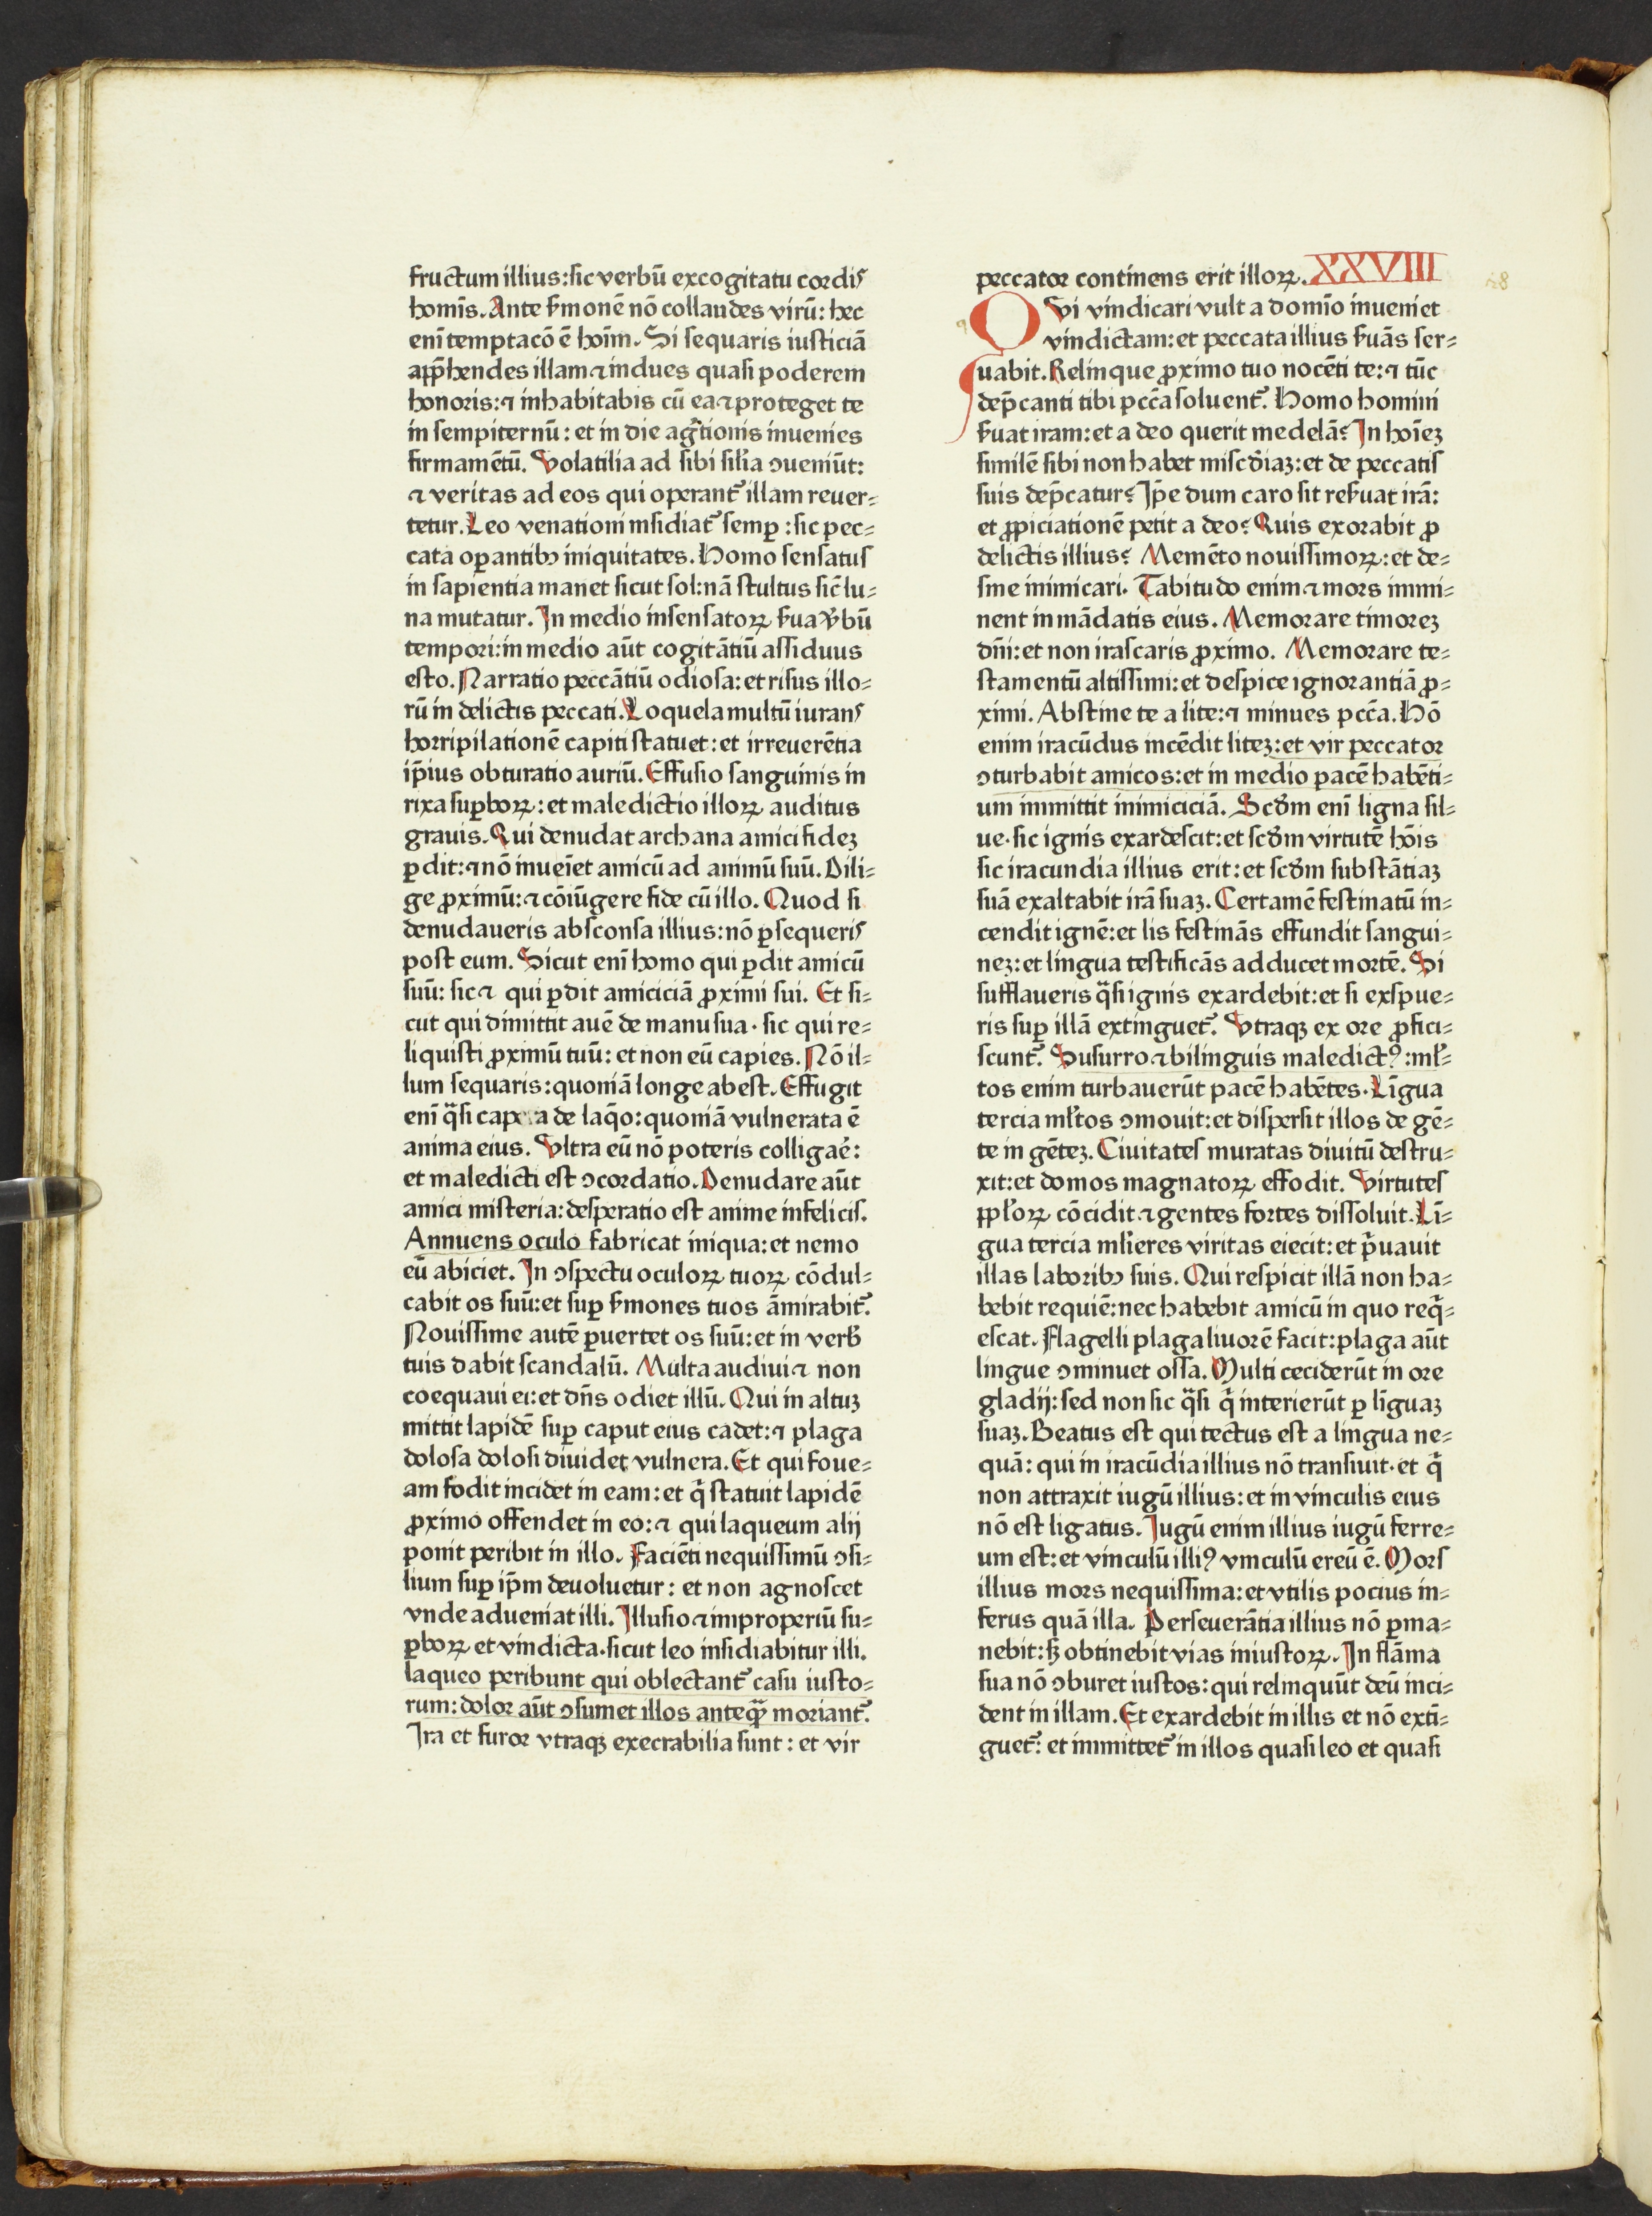 fructum illius:sic verbū excogitatu cordis
homīs. Ante ẜmonē nō collaudes virū: hec
enī temptacō ē hoīm. Si sequaris iusticiā
app̄hendes illam ⁊ indues quasi poderem
honoris: ⁊ inhabitabis cū ea ⁊ proteget te
in sempiternū: et in die ag̅tionis inuenies
firmamētū. Volatilia ad sibi sil̓ia ↄueniūt:
⁊ veritas ad eos qui operant᷑ illam reuer⸗
tetur. Leo venationi insidiat᷑ semꝑ: sic pec⸗
cata oꝑantibꝫ iniquitates. Homo sensatus
in sapientia manet sicut sol: nā stultus sic̄ lu⸗
na mutatur. In medio insensatoꝝ ẜua v̓bū
tempori: in medio aūt cogitātiū assiduus
esto. Narratio peccātiū odiosa: et risus illo⸗
rū in delictis peccati. Loquela multū iurans
horripilationē capiti statuet: et irreuerētia
ip̄ius obturatio auriū. Effusio sanguinis in
rixa suꝑboꝝ: et maledictio illoꝝ auditus
grauis. Qui denudat archana amici fideꝫ
ꝑdit: ⁊ nō inueīet amicū ad animū suū. Dili⸗
ge ꝓximū: ⁊ cōiūgere fide cū illo. Quod si
denudaueris absconsa illius: nō ꝑsequeris
post eum. Sicut enī homo qui ꝑdit amicū
suū: sic ⁊ qui ꝑdit amiciciā ꝓximi sui. Et si⸗
cut qui dimittit auē de manu sua· sic qui re⸗
liquisti ꝓximū tuū: et non eū capies. Nō il⸗
lum sequaris: quoniā longe abest. Effugit
enī q̄si cap a de laq̄o: quoniā vulnerata ē
anima eius. Vltra eū nō poteris colligae᷑:
et maledicti est ↄcordatio. Denudare aūt
amici misteria: desperatio est anime infelicis.
Annuens oculo fabricat iniqua: et nemo
eū abiciet. In ↄspectu oculoꝝ tuoꝝ cōdul⸗
cabit os suū: et suꝑ ẜmones tuos āmirabit᷑.
Nouissime autē ꝑuertet os suū: et in verb̓
tuis dabit scandalū. Multa audiui ⁊ non
coequaui ei: et dn̄s odiet illū. Qui in altuꝫ
mittit lapidē suꝑ caput eius cadet: ⁊ plaga
dolosa dolosi diuidet vulnera. Et qui foue⸗
am fodit incidet in eam: et q̄ statuit lapidē
ꝓximo offendet in eo: ⁊ qui laqueum alij
ponit peribit in illo. Faciēti nequissimū ↄsi⸗
lium suꝑ ip̄m deuoluetur: et non agnoscet
vnde adueniat illi. Illusio ⁊ improperiū su⸗
ꝑboꝝ et vindicta·sicut leo insidiabitur illi.
laqueo peribunt qui oblectant᷑ casu iusto⸗
rum: dolor aūt ↄsumet illos anteq̄ꝫ moriant᷑.
Ira et furor vtraqꝫ execrabilia sunt: et vir
peccator continens erit illoꝝ. XXVIIII 28
Qvi vindicari vult a domīo inueniet
vindictam: et peccata illius ẜuās ser⸗
uabit. Relinque ꝓximo tuo nocēti te: ⁊ tūc
dep̄canti tibi pcc̄a soluent᷑. Homo homini
ẜuat iram: et a deo querit medelā? In hoīeꝫ
similē sibi non habet misc̄diaꝫ: et de peccatis
suis dep̄catur? Ip̄e dum caro sit reẜuat irā:
et ꝓpiciationē petit a deo? Quis exorabit ꝓ
delictis illius? Memēto nouissimoꝝ: et de⸗
sine inimicari. Tabitudo enim ⁊ mors immi⸗
nent in mādatis eius. Memorare timoreꝫ
dn̄i: et non irascaris ꝓximo. Memorare te⸗
stamentū altissimi: et despice ignorantiā ꝓ⸗
ximi. Abstine te a lite: ⁊ minues pcc̄a. Hō
enim iracūdus incēdit liteꝫ: et vir peccator
ↄturbabit amicos: et in medio pacē habēti⸗
um immittit inimiciciā. Scd̄m enī ligna sil⸗
ue· sic ignis exardescit: et scd̄m virtutē hoīs
sic iracundia illius erit: et scd̄m substātiaꝫ
suā exaltabit irā suaꝫ. Certamē festinatū in⸗
cendit ignē: et lis festinās effundit sangui⸗
neꝫ: et lingua testificās adducet mortē. Si
sufflaueris q̄si ignis exardebit: et si exspue⸗
ris suꝑ illā extinguet᷑. Vtraqꝫ ex ore ꝓfici⸗
scunt᷑. Susurro ⁊ bilinguis maledictꝰ: ml̓⸗
tos enim turbauerūt pacē habētes. Līgua
tercia ml̓tos ↄmouit: et dispersit illos de gē⸗
te in gēteꝫ. Ciuitates muratas diuitū destru⸗
xit: et domos magnatoꝝ effodit. Virtutes
pp̄l̓oꝝ cōcidit ⁊ gentes fortes dissoluit. Lī⸗
gua tercia ml̓ieres viritas eiecit: et p̄uauit
illas laboribꝫ suis. Qui respicit illā non ha⸗
bebit requiē: nec habebit amicū in quo req̄⸗
escat. Flagelli plaga liuorē facit: plaga aūt
lingue ↄminuet ossa. Multi ceciderūt in ore
gladij: sed non sic q̄si q̄ interierūt ꝑ līguaꝫ
suaꝫ. Beatus est qui tectus est a lingua ne⸗
quā: qui in iracūdia illius nō transiuit· et q̄
non attraxit iugū illius: et in vinculis eius
nō est ligatus. Iugū enim illius iugū ferre⸗
um est: et vinculū illiꝰ vinculū ereū ē. Mors
illius mors nequissima: et vtilis pocius in⸗
ferus quā illa. Perseuerātia illius nō ꝑma⸗
nebit: sꝫ obtinebit vias iniustoꝝ. In flāma
sua nō ↄburet iustos: qui relinquūt deū inci⸗
dent in illam. Et exardebit in illis et nō extī⸗
guet᷑: et immittet᷑ in illos quasi leo et quasi